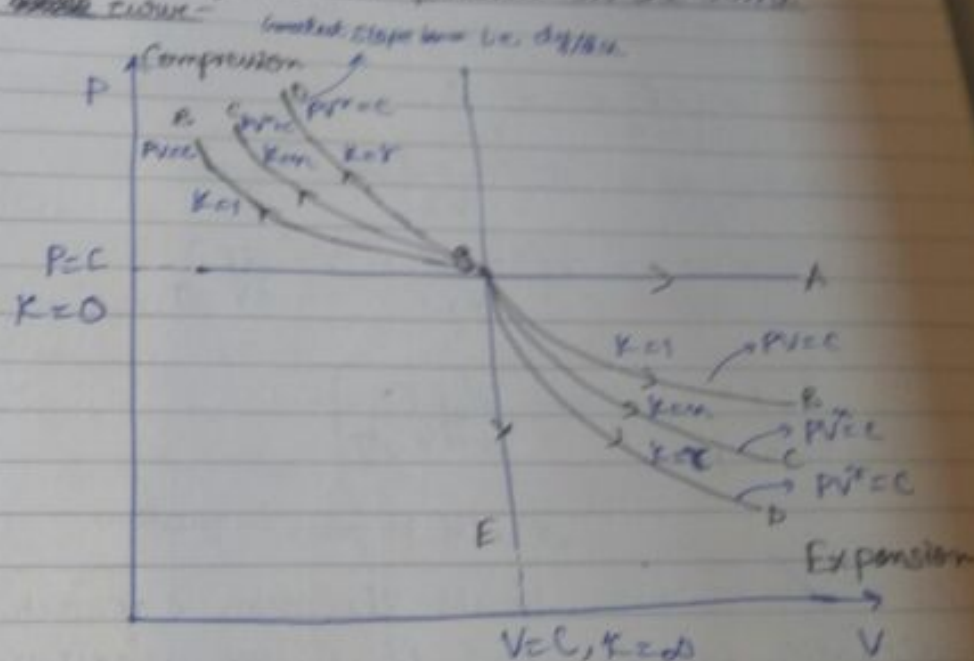 Curve-
Greatest slope
i.e. dy/dx.
Compression
P
B
C
D
PV=C
PVⁿ=C
PVʳ=C
K=1
K=n
K=γ
P=C
K=0
A
K=1
PV=C
B
K=n
PVⁿ=C
C
K=γ
PVʳ=C
D
E
Expansion
V=C, K=∞
V